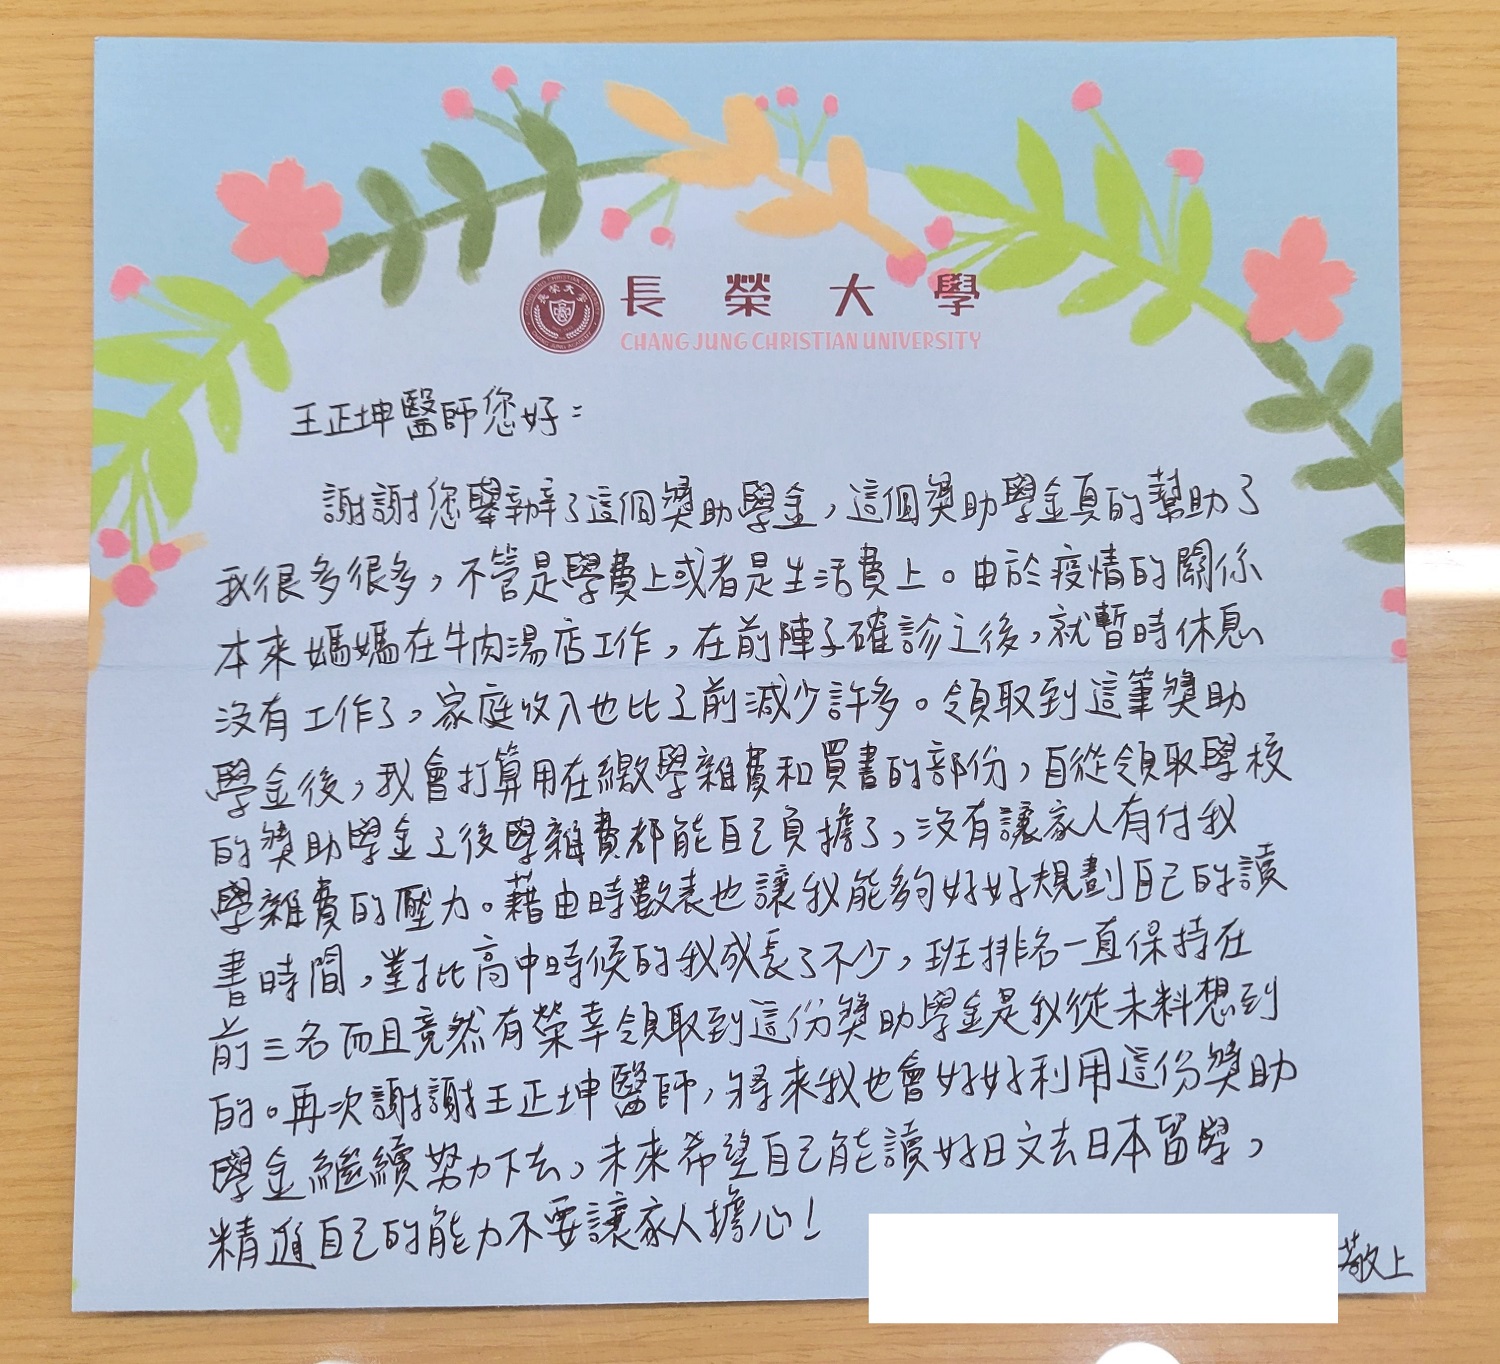 長榮大學
CHANG JUNG CHRISTIAN UNIVERSITY
王正坤醫師您好：
謝謝您舉辦了這個獎助學金，這個獎助學金真的幫助了
我很多很多，不管是學費上或者是生活費上。由於疫情的關係
本來媽媽在牛肉湯店工作，在前陣子確診之後，就暫時休息
沒有工作了，家庭收入也比之前減少許多。領取到這筆獎助
學金後，我會打算用在繳學雜費和買書的部份，自從領取學校
的獎助學金之後學雜費都能自己負擔了，沒有讓家人有付我
學雜費的壓力。藉由時數表也讓我能夠好好規劃自己的讀
書時間，對比高中時候的我成長了不少，班排名一直保持在
前三名而且竟然有榮幸領取到這份獎助學金是我從未料想到
的。再次謝謝王正坤醫師，將來我也會好好利用這份獎助
學金繼續努力下去，未來希望自己能讀好日文去日本留學，
精進自己的能力不要讓家人擔心！
敬上